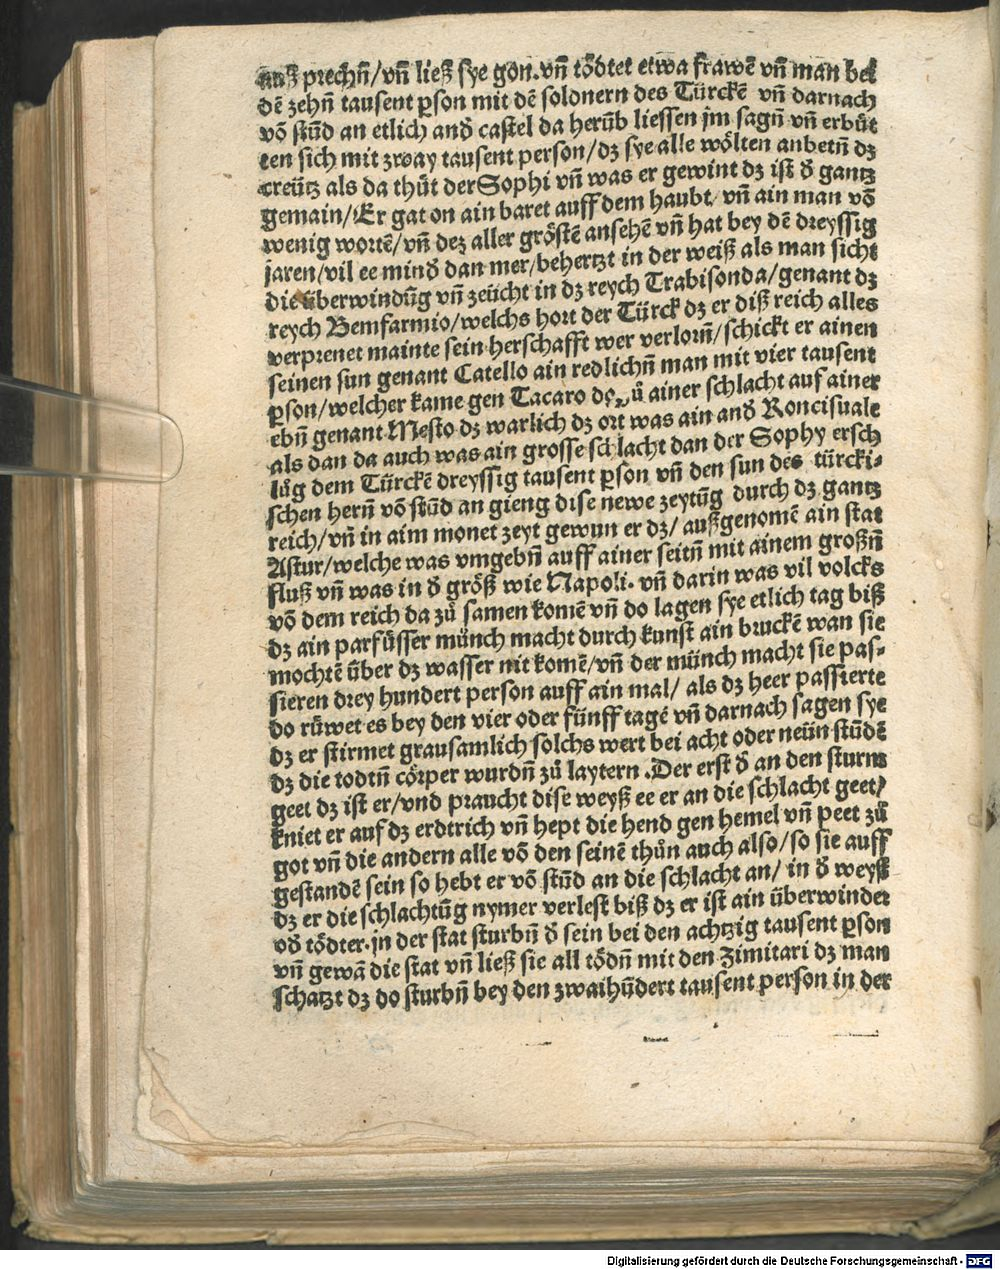 auß prechñ/vñ ließ sye gon.vñ tödtet etwa frawē vñ man bei
dē zehñ tausent ꝑson mit dē soldnern des Türckē vñ darnach
vō stūd an etlich andꝰ castel da herūb liessen jm sagñ vñ erbüt
ten sich mit zway tausent person/dz sye alle wölten anbetñ dz
creütz als da thüt der Sophi vñ was er gewint dz ist ð gantz
gemain/Er gat on ain baret auff dem haubt/vñ ain man vō
wenig wortē/vñ dez aller gröstē ansehē vñ hat bey dē dreyssig
jaren/vil ee mindꝰ dan mer/behertzt in der weiß als man sicht
die überwindūg vñ zeücht in dz reych Trabisonda/genant dz
reych Bemfarmio/welchs hort der Türck dz er diß reich alles
verprenet mainte sein herschafft wer verlorñ/schickt er ainen
seinen sun genant Catello ain redlichñ man mit vier tausent
ꝑson/welcher kame gen Tacaro zů ainer schlacht auf ainer
ebñ genant Mesto dz warlich dz ort was ain andꝰ Roncisuale
als dan da auch was ain grosse schlacht dan der Sophy ersch
lůg dem Türckē dreyssig tausent ꝑson vñ den sun des türcki-
schen herñ vō stūd an gieng dise newe zeytūg durch dz gantz
reich/vñ in aim monet zeyt gewun er dz/außgenomē ain stat
Astur/welche was vmgebñ auff ainer seitñ mit ainem großñ
fluß vñ was in ð größ wie Napoli. vñ darin was vil volcks
vō dem reich da zů samen komē vñ do lagen sye etlich tag biß
dz ain parfüsser münch macht durch kunst ain bruckē wan sie
mochtē über dz wasser nit komē/vñ der münch macht sie pas-
sieren drey hundert person auff ain mal/als dz heer passierte
do rüwet es bey den vier oder fünff tagē vñ darnach sagen sye
dz er stirmet grausamlich solchs wert bei acht oder neün stūdē
dz die todtñ cörper wurdñ zů laytern .Der erst ð an den sturm
geet dz ist er/vnd praucht dise weyß ee er an die schlacht geet/
kniet er auf dz erdtrich vñ hept die hend gen hemel vñ peet zů
got vñ die andern alle vō den seinē thůn auch also/so sie auff
gestandē sein so hebt er vō stūd an die schlacht an/in ð weyß
dz er die schlachtūg nymer verlest biß dz er ist ain überwinder
vð tödter.in der stat sturbñ ð sein bei den achtzig tausent ꝑson
vñ gewā die stat vñ ließ sie all tödñ mit den Zimitari dz man
schatzt dz do sturbñ bey den zwaihūdert tausent person in der
Digitalisierung gefördert durch die Deutsche Forschungsgemeinschaft - DFG